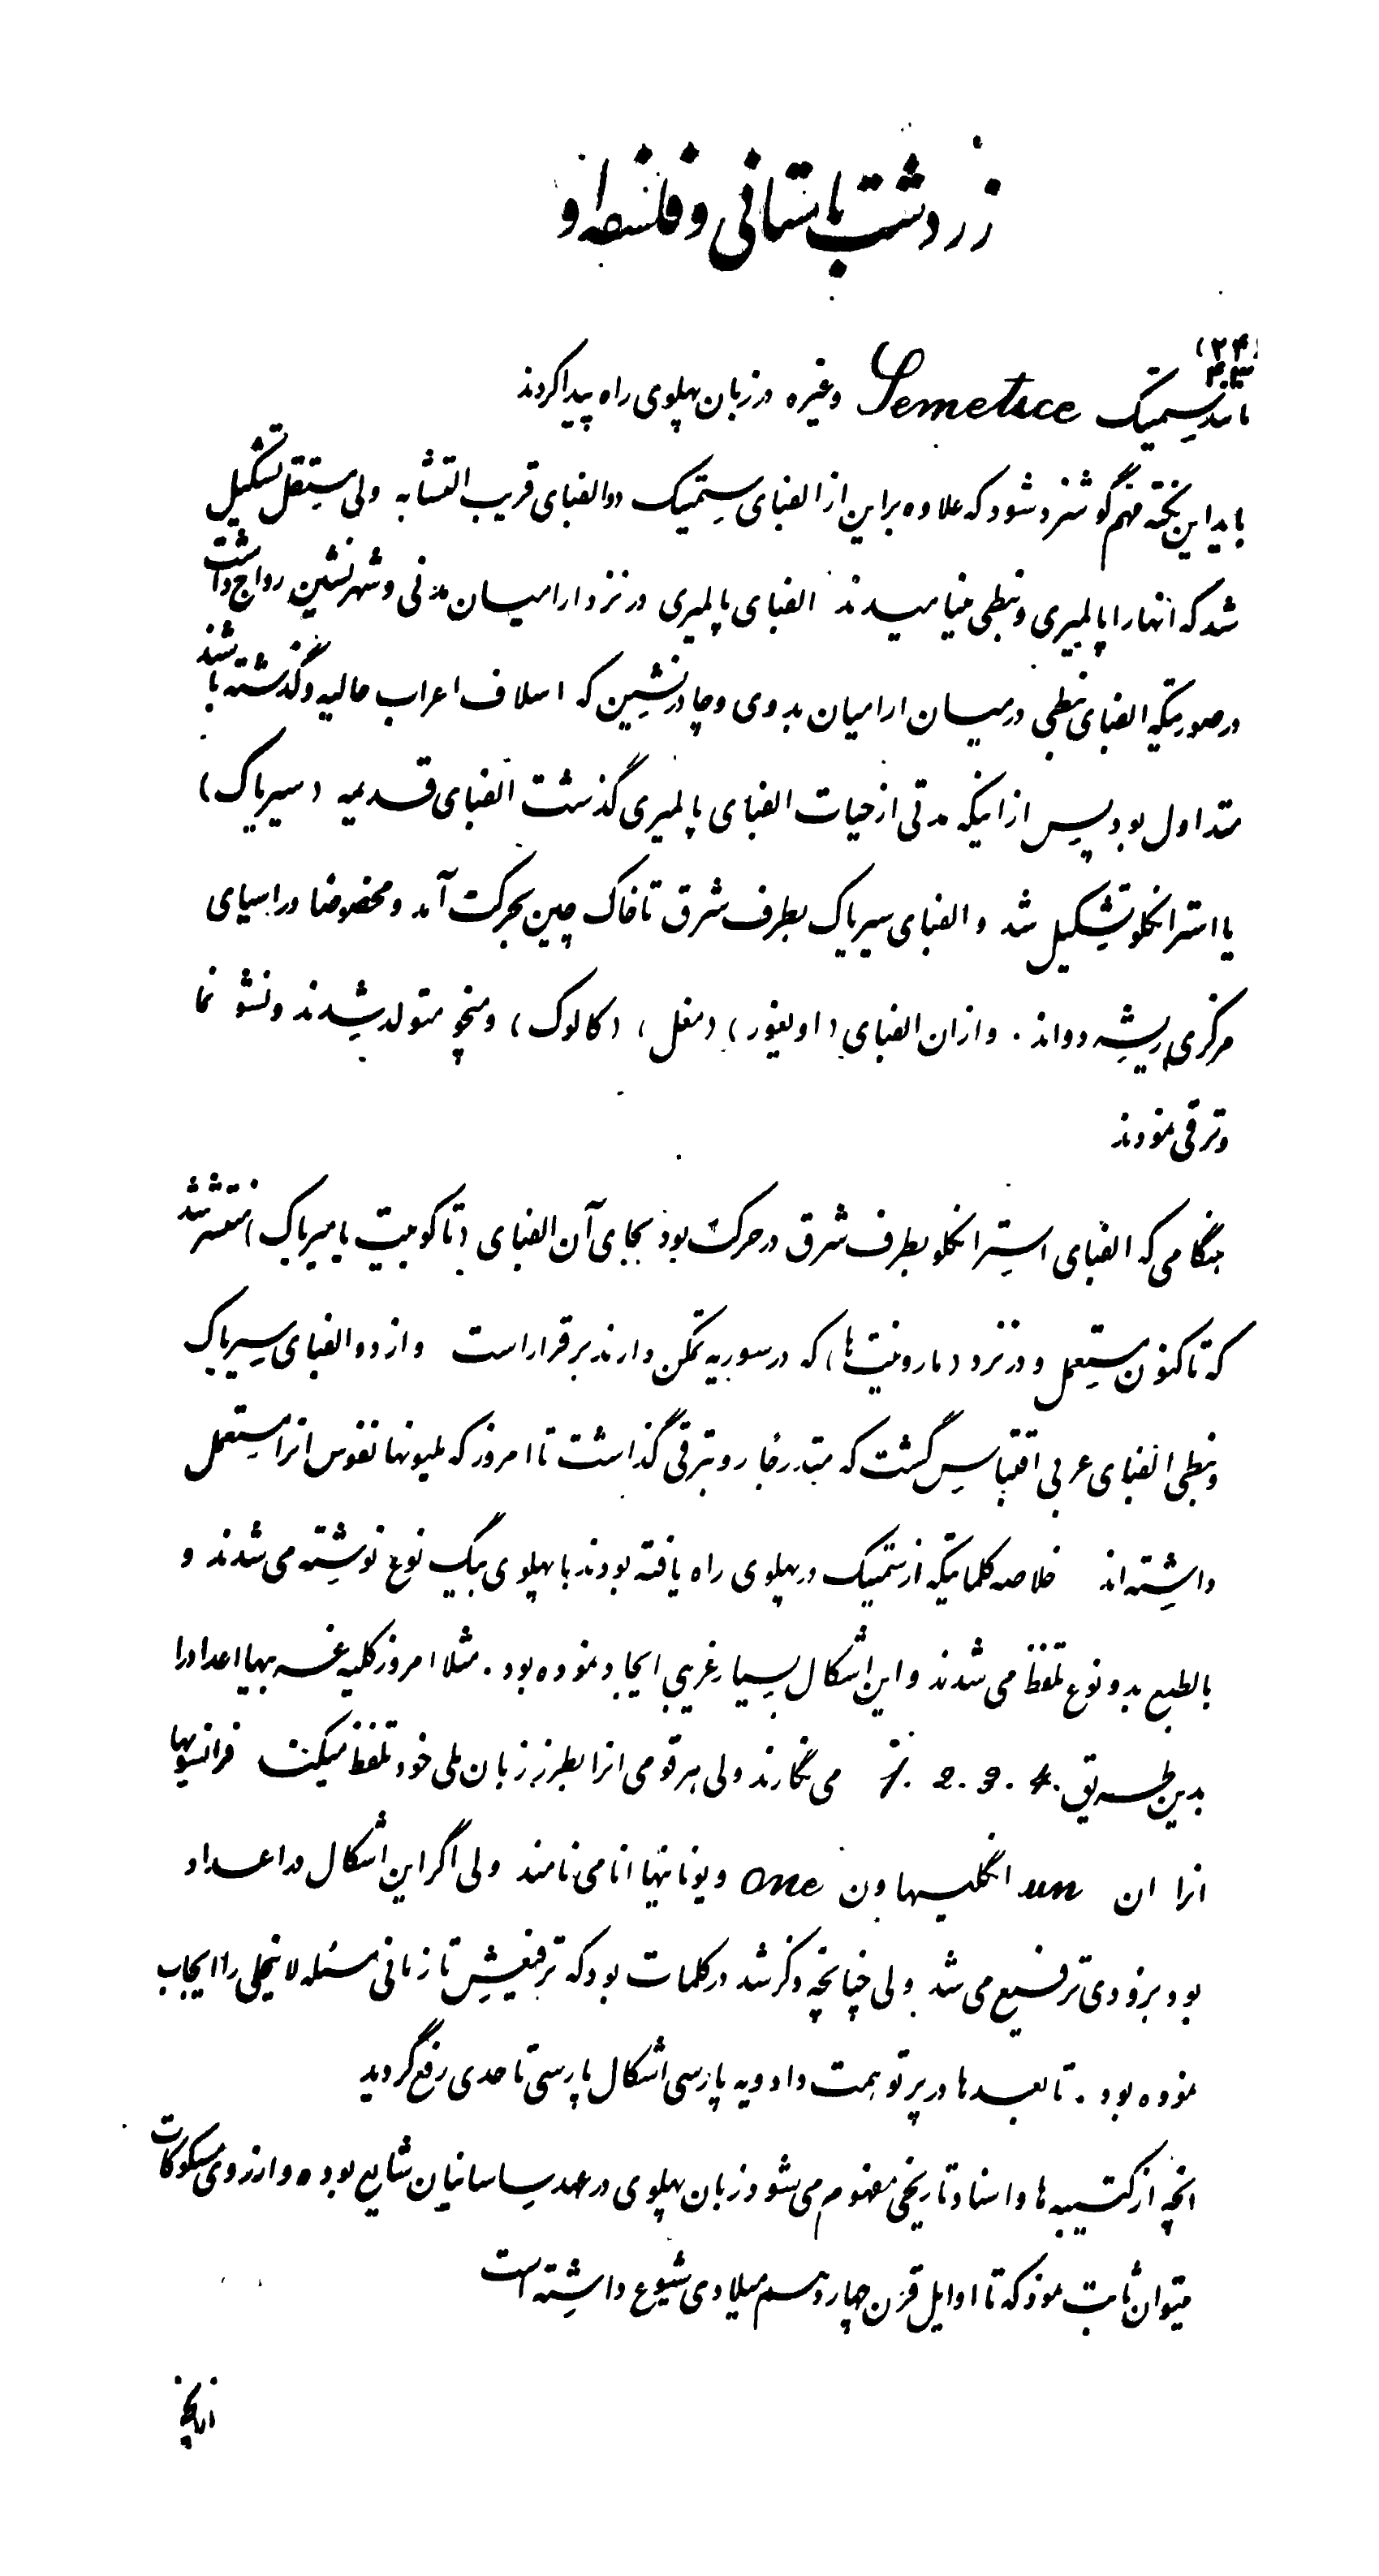 زردشت باستانی و فلسفه او
(۲۴)
۴۰۳
مانند سمتیک Semetice وغیره در زبان پهلوی راه پیدا کردند
باید این نکته مهم گوشزد شود که علاوه براین از الفبای سمتیک دو الفبای قریب التشابه ولی مستقل تشکیل
شد که انهارا پالمیری و نبطی مینامیدند الفبای پالمیری در نزد ارامیان مدنی و شهر نشین رواج داشت
در صورتیکه الفبای نبطی در میان ارامیان بدوی و چادر نشین که اسلاف اعراب حالیه و گذشته باشند
متداول بود پس از اینکه مدتی از حیات الفبای پالمیری گذشت الفبای قدیمه (سیریاک)
یا استرانکلو تشکیل شد و الفبای سیریاک بطرف شرق تا خاک چین بحرکت آمد و مخصوصا در اسیای
مرکزی ریشه دواند . و ازان الفبای (اویغور) (مغل) (کالوک) و منچو متولد شدند و نشو نما
و ترقی نمودند
هنگامی که الفبای استرانکلو بطرف شرق در حرکت بود بجای آن الفبای (تاکوبیت یا سیریاک) منتشر شد
که تاکنون مستعمل و در نزد (مارونیت ها) که در سوریه تمکن دارند برقرار است و از دو الفبای سیریاک
و نبطی الفبای عربی اقتباس گشت که متدرجا رو بترقی گذاشت تا امروز که ملیونها نفوس انرا مستعمل
داشته اند خلاصه کلماتیکه از سمتیک در پهلوی راه یافته بودند با پهلوی بیک نوع نوشته می شدند و
بالطبع بدو نوع تلفظ می شدند و این اشکال بسیار غریبی ایجاد نموده بود . مثلا امروز کلیه غربیها اعداد را
بدین طریق 1. 2. 3. 4. می نگارند ولی هر قومی انرا بطرز زبان ملی خود تلفظ میکنند فرانسویها
انرا ان un انگلیسها ون one و یونانیها انا می نامند ولی اگر این اشکال در اعداد
بود بزودی ترفیع می شد ولی چنانچه ذکر شد در کلمات بود که ترفیعش تا زمانی مسئله لاینحلی را ایجاب
نموده بود . تا بعدها در پرتو همت دادویه پارسی اشکال پارسی تا حدی رفع گردید
انچه از کتیبه ها و اسناد تاریخی مفهوم می شود زبان پهلوی در عهد ساسانیان شایع بوده و از روی مسکوکات
میتوان ثابت نمود که تا اوایل قرن چهاردهم میلادی شیوع داشته است